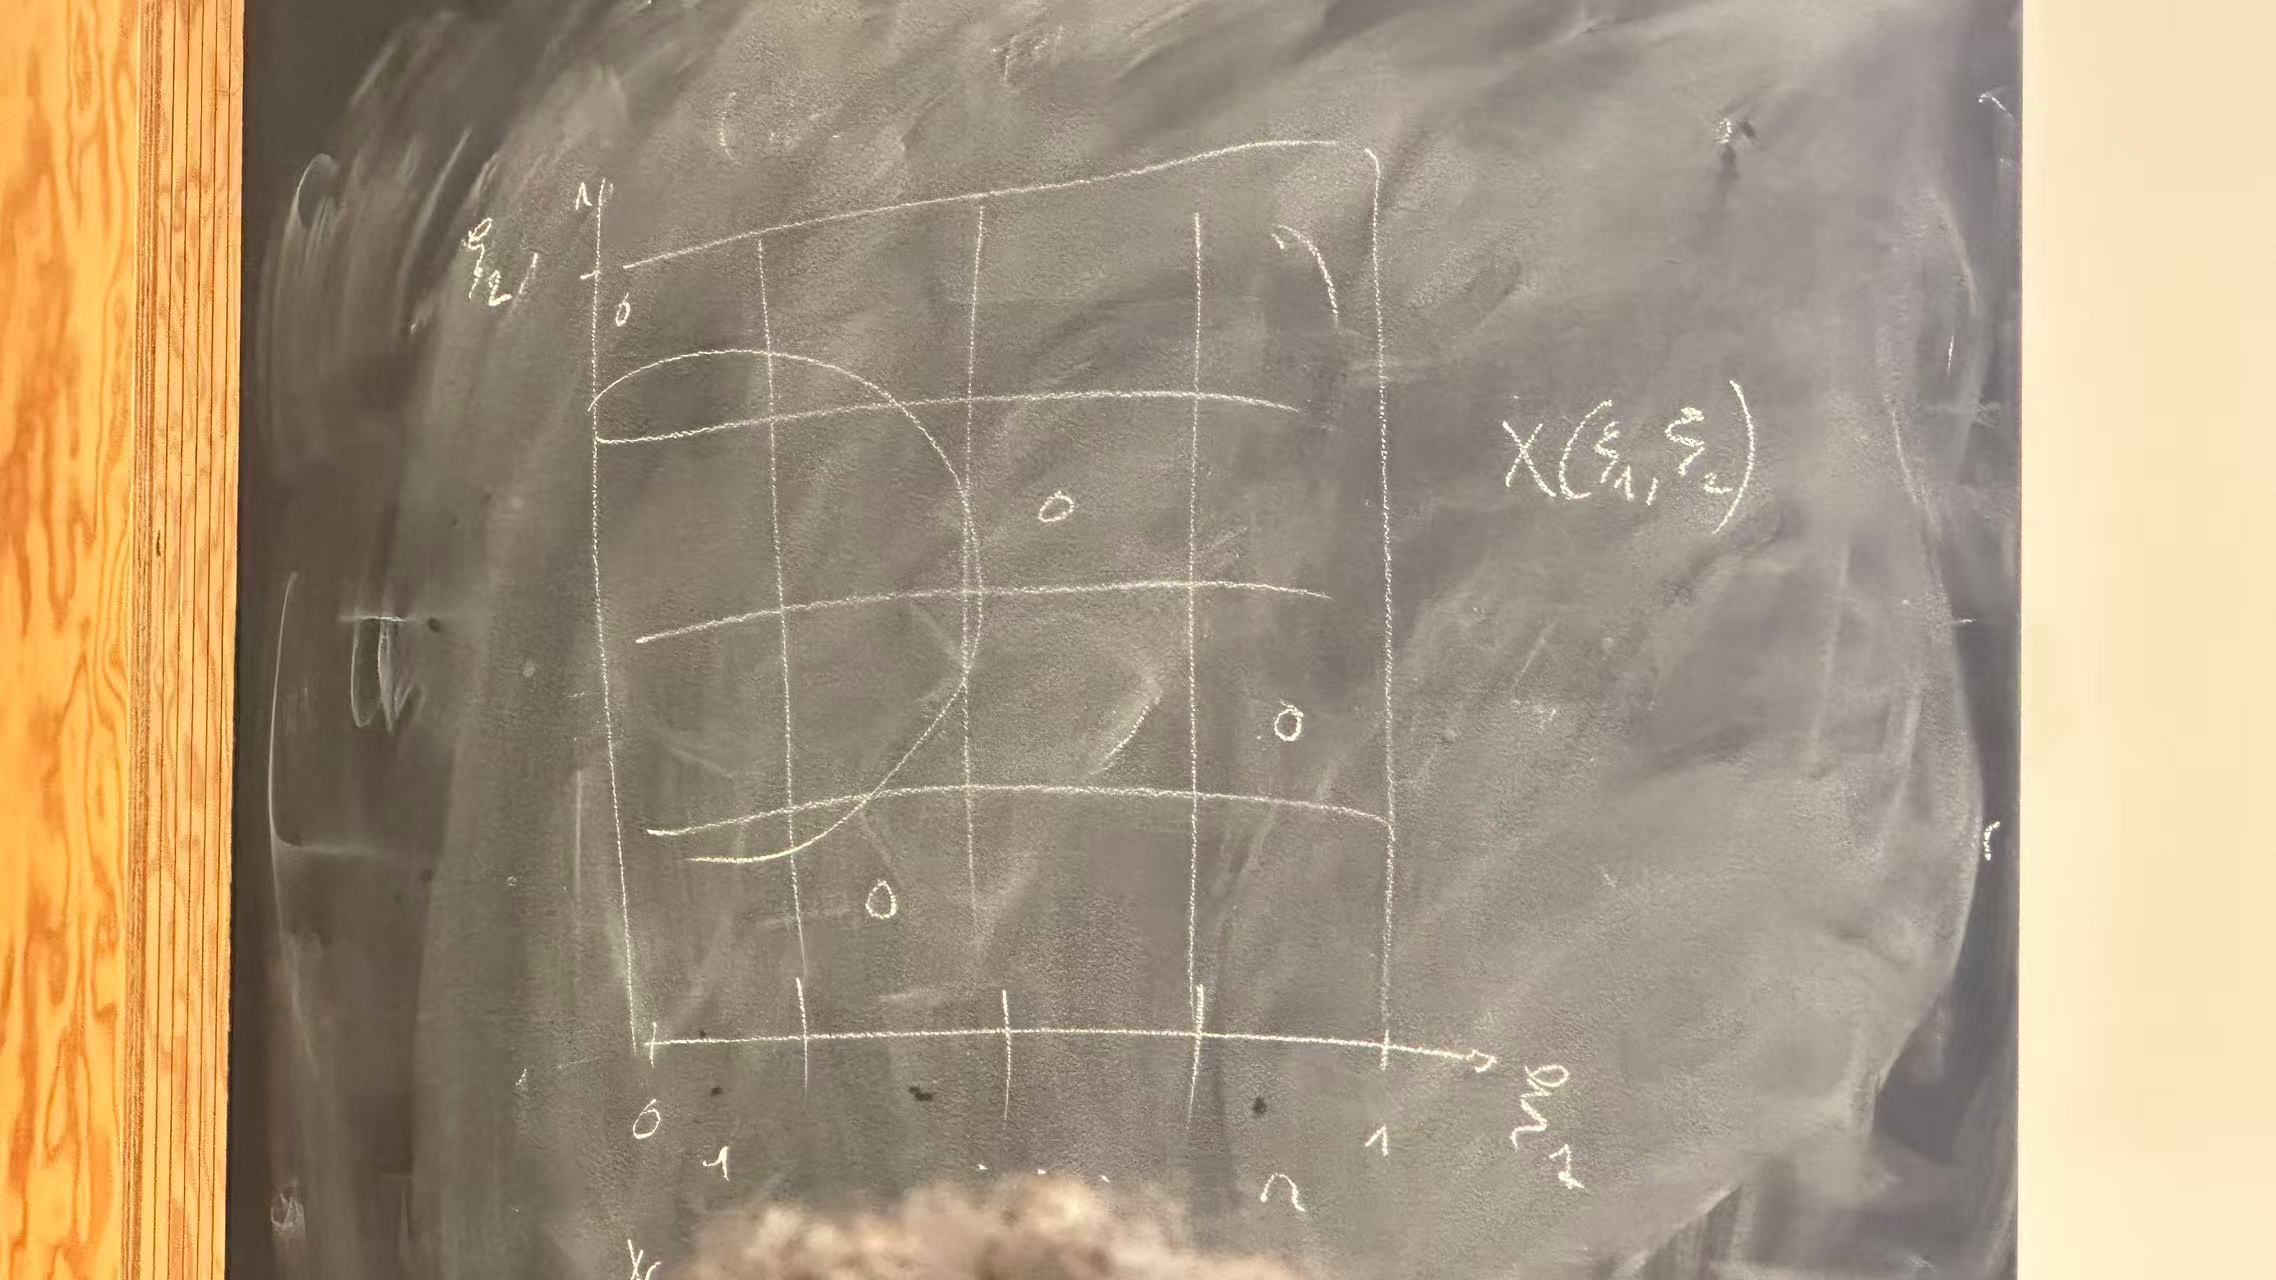 1
ξ₂
0
X(ξ₁, ξ₂)
0
0
0
0
1
ξ₁
1
n